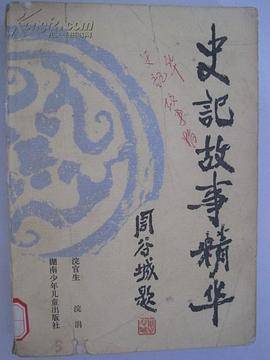 史記故事精华
周谷城題
浣官生 浣涓
湖南少年儿童出版社